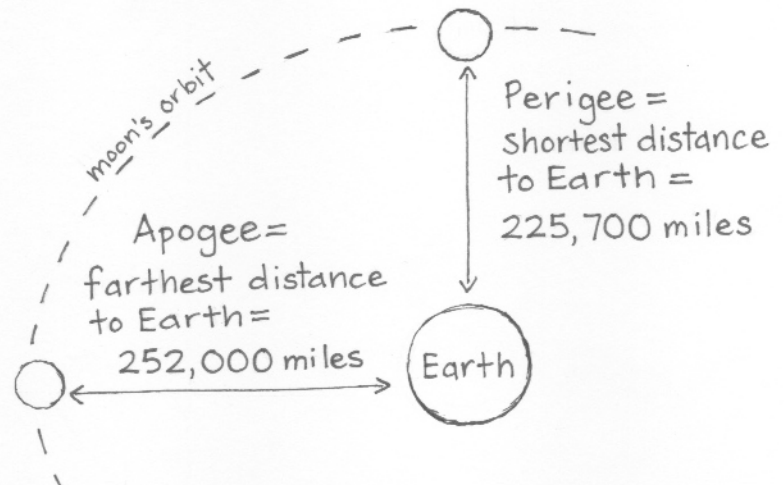 moon's orbit
Perigee =
shortest distance
to Earth =
225,700 miles
Apogee =
farthest distance
to Earth =
252,000 miles
Earth